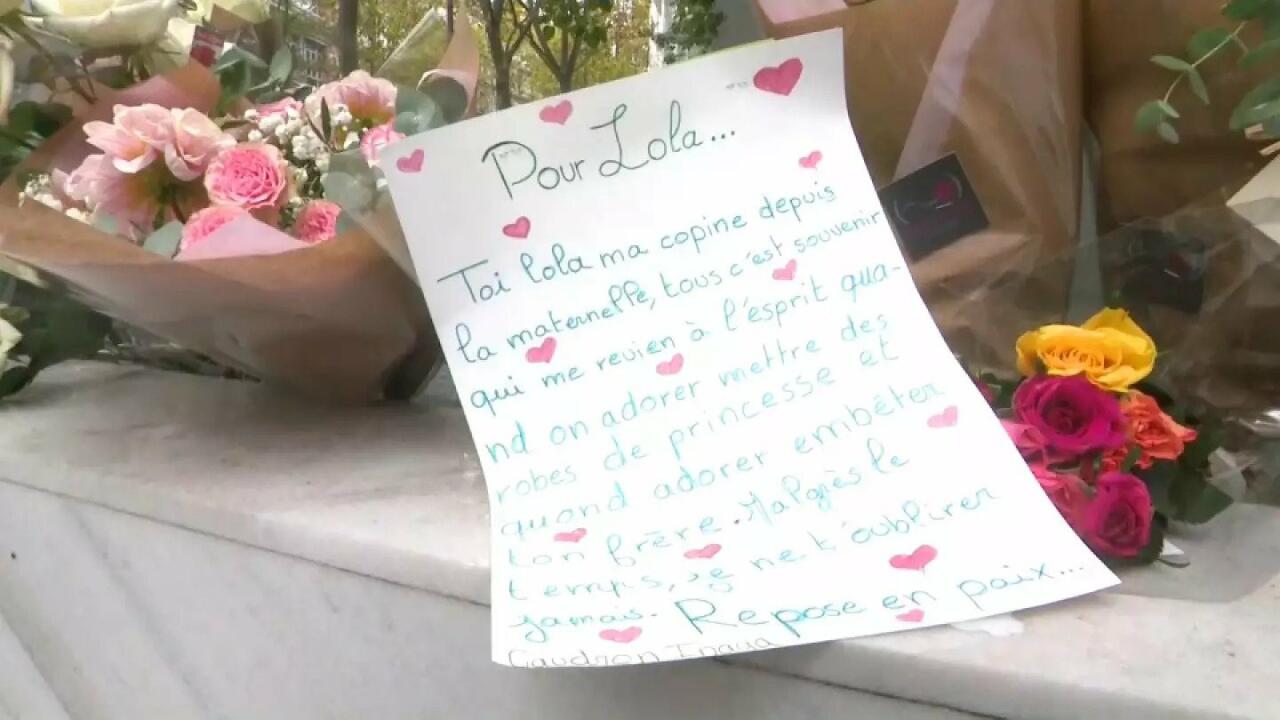 Pour Lola...
Toi lola ma copine depuis
la maternelle, tous c'est souvenir
qui me revien à l'ésprit qua-
nd on adorer mettre des
robes de princesse et
quand adorer embêter
ton frère. Malgrès le
temps, je ne t'oublirer
jamais. Repose en paix...
Gaudron Inaya